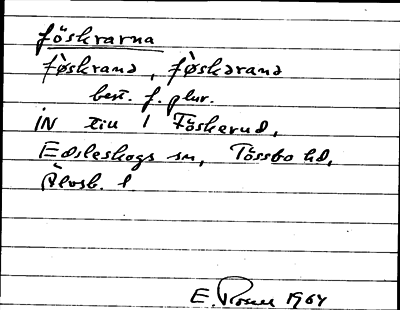 föskrarna
fø̀skrana, fø̀skərana
best. f. plur.
IN till 1 Föskerud,
Edsleskogs sn, Tössbo hd,
Älvsb. l
E. 1964